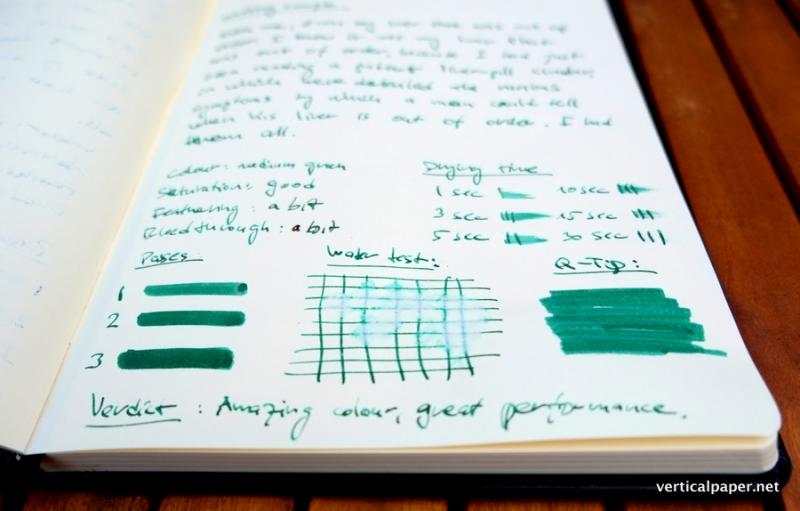 Writing sample:
that my liver that was out of
order. I knew it was my liver that
was out of order, because I had just
been reading a patent liver-pill circular,
in which were detailed the various
symptoms by which a man could tell
when his liver is out of order. I had
them all.
Colour: medium green
Saturation: good
Feathering: a bit
Bleedthrough: a bit
Drying time
1 sec 10 sec
3 sec 15 sec
5 sec 30 sec
Pases:
1
2
3
Water test:
Q-Tip:
Verdict: Amazing colour, great performance.
verticalpaper.net